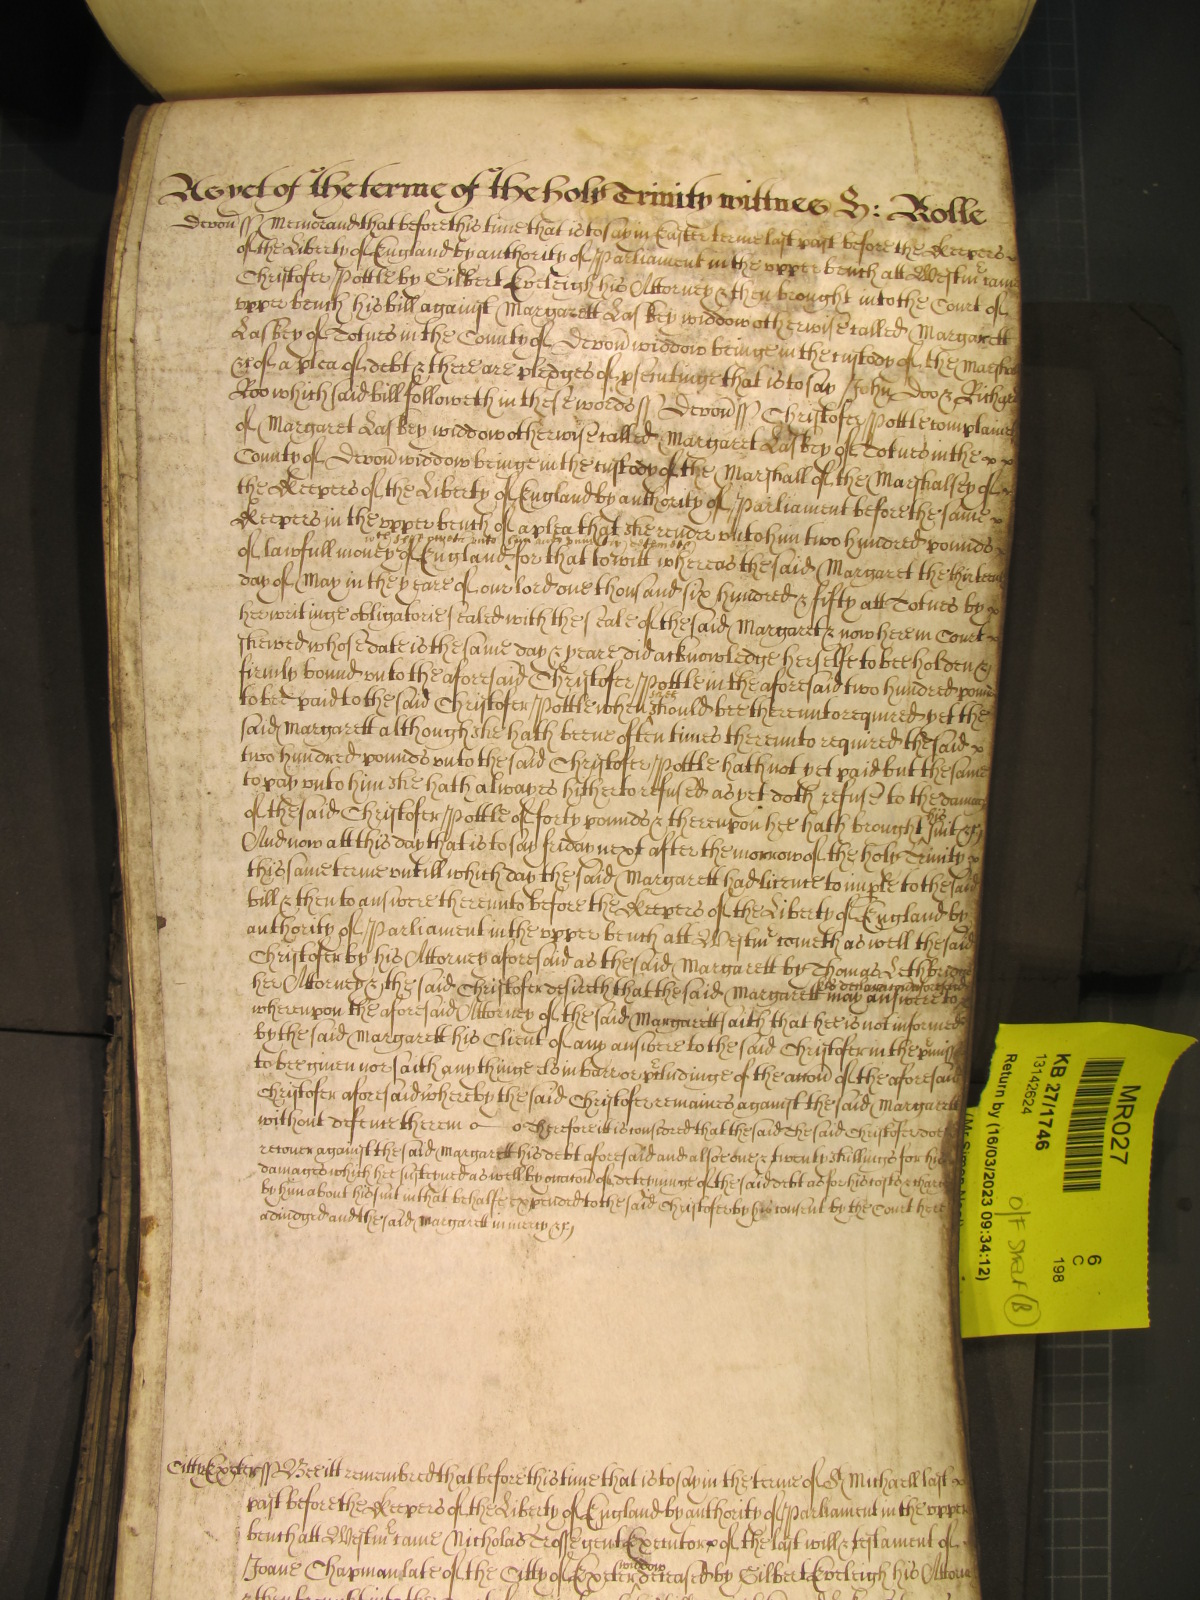 As yet of the terme of the holy Trinity wittnes H: Rolle
Devon ss Memorand that before this time that is to say in Easter terme last past before the Keepers
of the Liberty of England by authority of Parliament in the upper bench att Westm came
Christofer Pottle by Gilbert Eveleigh his Attorney & then brought into the Court of
upper bench his bill against Margarett Laskey widdow otherwise called Margarett
Laskey of Totnes in the County of Devon widdow beinge in the custody of the Marshall
&c of a plea of debt & there are pledges of psecutinge that is to say John Doo & Richard
Roo which said bill followeth in these words ss Devon ss Christofer Pottle complaines
of Margaret Laskey widdow otherwise called Margaret Laskey of Totnes in the
County of Devon widdow beinge in the custody of the Marshall of the Marshalsey of
the Keepers of the Liberty of England by authority of Parliament before the same
Keepers in the upper bench of a plea that she render unto him two hundred pounds
of lawfull money of England for that to witt whereas the said Margaret the thirteenth
day of May in the yeare of our lord one thousand six hundred & fifty att Totnes by
her writinge obligatorie sealed with the seale of the said Margaret & now here in Court
shewed whose date is the same day & yeare did acknowledge herselfe to bee holden &
firmly bound unto the aforesaid Christofer Pottle in the aforesaid two hundred pounds
to bee paid to the said Christofer Pottle when shee should bee thereunto required yet the
said Margarett although she hath beene often times thereunto required the said
two hundred pounds unto the said Christofer Pottle hath not yet paid but the same
to pay unto him she hath alwayes hitherto refused as yet doth refuse to the damage
of the said Christofer Pottle of forty pounds & thereupon hee hath brought his suit &c
And now att this day that is to say friday next after the morrow of the holy Trinity
this same terme untill which day the said Margarett had licence to imple to the said
bill & then to answere thereunto before the Keepers of the Liberty of England by
authority of Parliament in the upper bench att Westm cometh as well the said
Christofer by his Attorney aforesaid as the said Margarett by Thomas Lethbridge
her Attorney & the said Christofer desireth that the said Margarett may answere to
his declaracon aforesaid
whereupon the aforesaid Attorney of the said Margarett saith that hee is not informed
by the said Margarett his Client of any answere to the said Christofer in the pmisses
to bee given nor saith anythinge els in barr or pcludinge of the accon of the aforesaid
Christofer aforesaid whereby the said Christofer remaines against the said Margarett
without defence therein o o Therefore it is considered that the said the said Christofer doe
recover against the said Margarett his debt aforesaid and alsoe one & twenty shillings for his
damages which hee susteyned as well by occacon of deteyninge of the said debt as for his costs & charges
by him about his suit in that behalfe expended to the said Christofer by his consent by the Court here
adiudged and the said Margarett in mercy &c
Citty Exeter ss Bee itt remembred that before this time that is to say in the terme of St Michaell last
past before the Keepers of the Liberty of England by authority of Parliament in the upper
bench att Westm came Nicholas Trosse gent Executor of the last will & testament of
Joane Chapman late of the Citty of Exeter widdow deceased by Gilbert Eveleigh his Attorney
MR027
KB 27/1746
13142624
Return by (16/03/2023 09:34:12)
6
C
198
O/F SMALL (B)